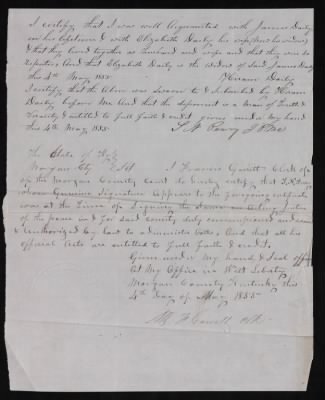 I certify that I was well Acquainted with James Daily
in his lifetime & with Elizabeth Daily his wife (now his widow)
& that they lived together as husband and wife and that they were so
reputed, And that Elizabeth Daily is the widow of Said James Daily
this 4th May 1855. Hiram Daily
I certify that the above was Sworn to & Subscribed by Hiram
Daily before me And that the deponent is a man of Truth &
Veracity & entitled to full faith & credit given under my hand
this 4th May 1855
The State of Ky
Morgan Cty Sct I Francis Clerk of
of the Morgan County Court do hereby certify that
whose Genuine Signature appears to the foregoing certificate
was at the time of Signing the Same acting Justice
of the peace in & for said County duly commissioned and sworn
& Authorized by law to administer Oaths, And that all his
official Acts are entitled to full faith & credit.
Given under my hand & Seal of office
At My Office in West Liberty
Morgan County Kentucky this
4th day of May 1855